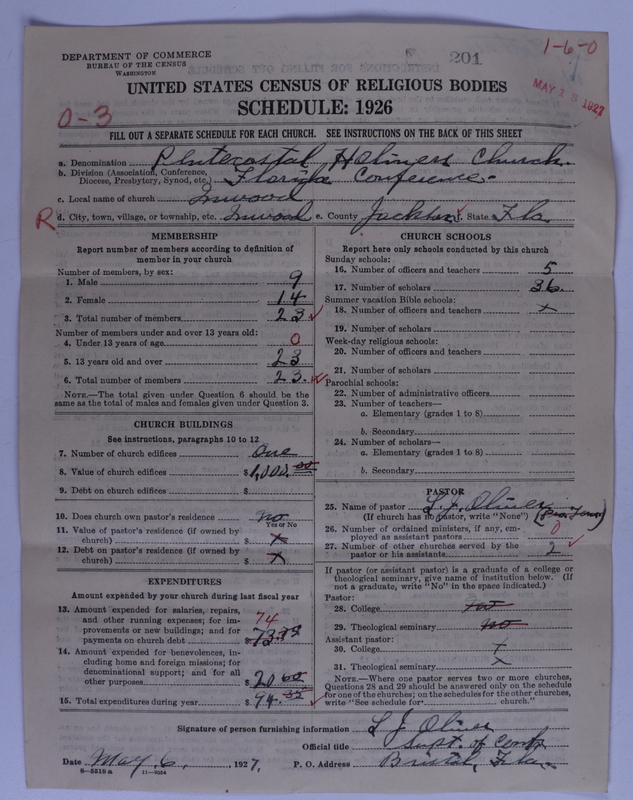 DEPARTMENT OF COMMERCE
BUREAU OF THE CENSUS
WASHINGTON
201
1-6-0
MAY 1927
UNITED STATES CENSUS OF RELIGIOUS BODIES
SCHEDULE: 1926
0-3
FILL OUT A SEPARATE SCHEDULE FOR EACH CHURCH. SEE INSTRUCTIONS ON THE BACK OF THIS SHEET
a. Denomination Pentecostal Holiness Church
b. Division (Association, Conference, Diocese, Presbytery, Synod, etc.) Florida Conference
c. Local name of church Inwood
R d. City, town, village, or township, etc. Inwood e. County Jackson f. State Fla
MEMBERSHIP
Report number of members according to definition of
member in your church
Number of members, by sex:
1. Male 9
2. Female 14
3. Total number of members 23
Number of members under and over 13 years old:
4. Under 13 years of age 0
5. 13 years old and over 23
6. Total number of members 23
NOTE.—The total given under Question 6 should be
same as the total of males and females given under Question 3.
CHURCH BUILDINGS
See instructions, paragraphs 10 to 12
7. Number of church edifices One
8. Value of church edifices $1,000.00
9. Debt on church edifices $
10. Does church own pastor's residence No
Yes or No
11. Value of pastor's residence (if owned by
church) $ x
12. Debt on pastor's residence (if owned by
church) $ x
EXPENDITURES
Amount expended by your church during last fiscal year
13. Amount expended for salaries, repairs,
and other running expenses; for im- 74
provements or new buildings; and for
payments on church debt $
14. Amount expended for benevolences, in-
cluding home and foreign missions; for
denominational support; and for all
other purposes $ 20
15. Total expenditures during year $ 94.
CHURCH SCHOOLS
Report here only schools conducted by this church
Sunday schools:
16. Number of officers and teachers 5
17. Number of scholars 36
Summer vacation Bible schools:
18. Number of officers and teachers x
19. Number of scholars
Week-day religious schools:
20. Number of officers and teachers
21. Number of scholars
Parochial schools:
22. Number of administrative officers
23. Number of teachers—
a. Elementary (grades 1 to 8)
b. Secondary
24. Number of scholars—
a. Elementary (grades 1 to 8)
b. Secondary
PASTOR
25. Name of pastor L. J. Oliver
(If church has no pastor, write "None")
26. Number of ordained ministers, if any, em-
ployed as assistant pastors 0
27. Number of other churches served by the
pastor or his assistants 2
If pastor (or assistant pastor) is a graduate of a college or
theological seminary, give name of institution below. (If
not a graduate, write "No" in the space indicated.)
Pastor:
28. College No
29. Theological seminary No
Assistant pastor:
30. College x
31. Theological seminary x
NOTE.—Where one pastor serves two or more churches,
Questions 28 and 29 should be answered only on the schedule
for one of the churches; on the schedules for the other churches,
write "See schedule for church."
Signature of person furnishing information L J Oliver
Official title Supt. of Conf.
Date May 6, 1927. P. O. Address Bristol, Fla.
8—5518a 11—9554